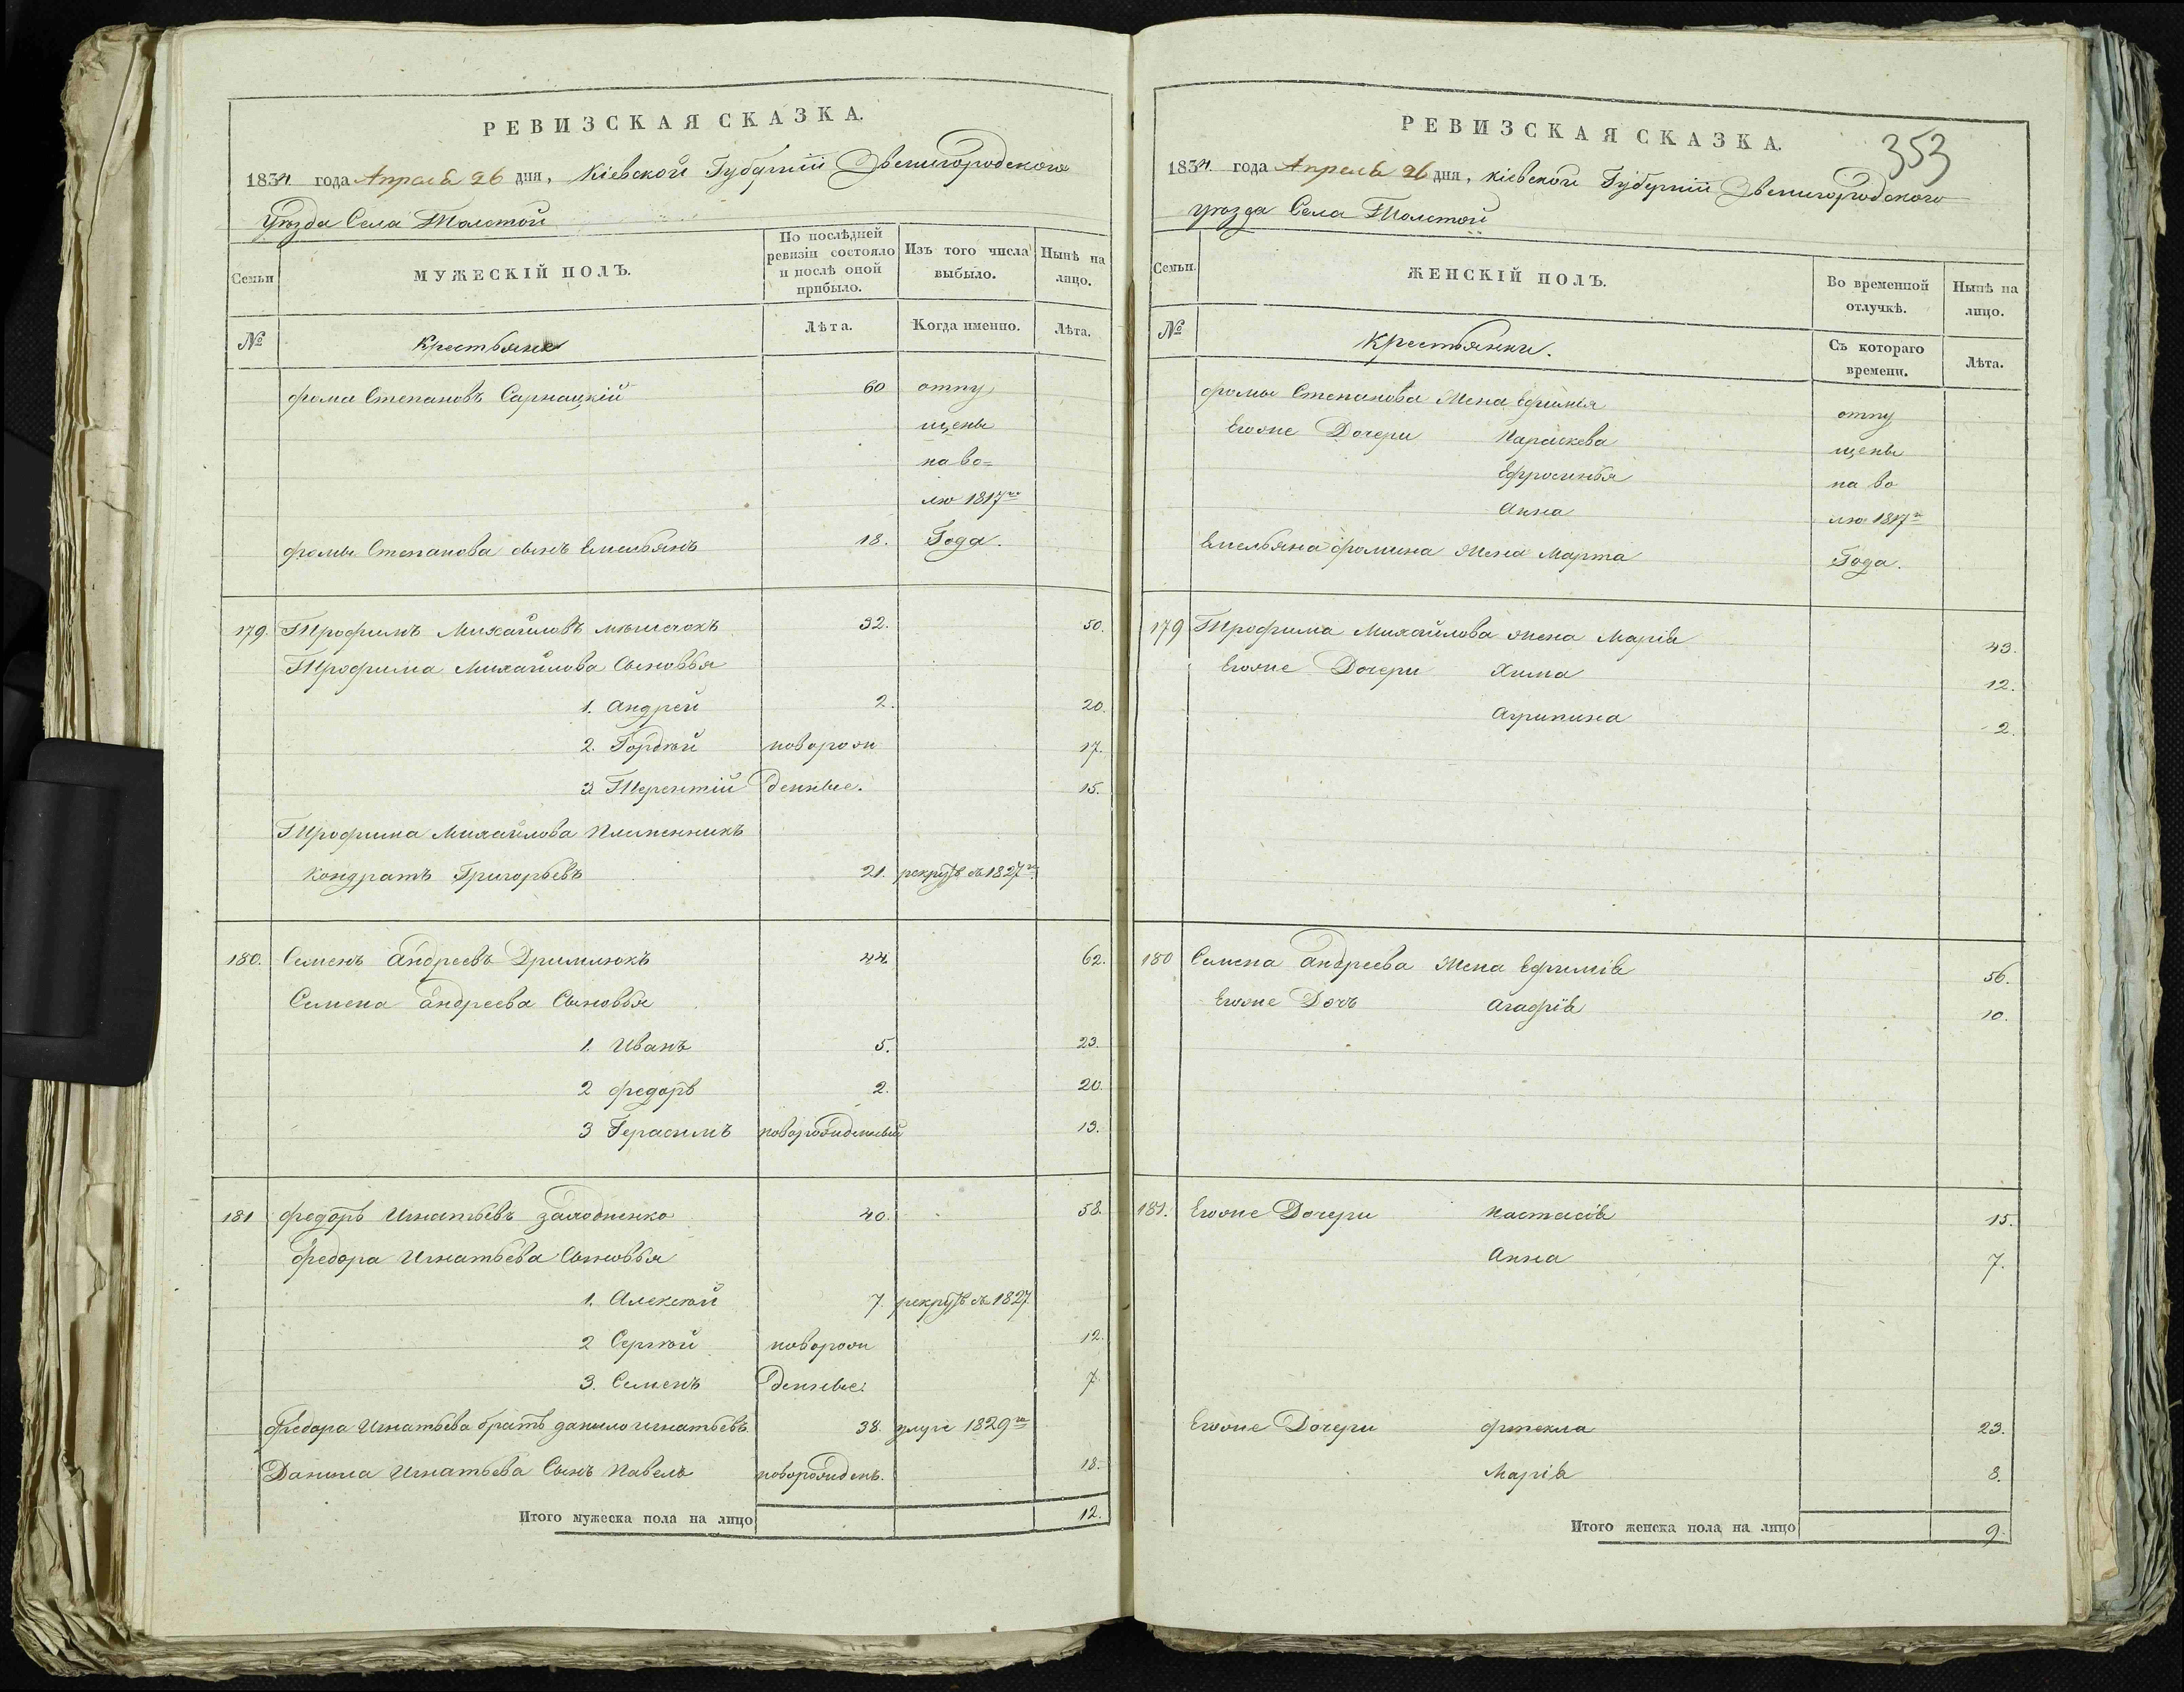 РЕВИЗСКАЯ СКАЗКА.
1834 года Апреля 26 дня, Кіевской Губерніи Звенигородского
уѣзда Села Толстой
Семьи
МУЖЕСКІЙ ПОЛЪ.
По послѣдней ревизіи состояло и послѣ оной прибыло.
Изъ того числа выбыло.
Нынѣ на лицо.
№
Крестьяне
Лѣта.
Когда именно.
Лѣта.
Фома Степановъ Сарнацкій 60 отпу
щены
на во=
лю 1817го
Фомы Степанова сынъ Емельянъ 18. Года.
179. Трофимъ Михайловъ мѣшечокъ 32. 50.
Трофима Михайлова Сыновья
1. Андрей 2. 20.
2. Гордѣй новорож 17.
3 Терентій денные. 15.
Трофима Михайлова Племенникъ
Кондратъ Григорьевъ 21. рекрутъ съ 1827го
180. Семенъ Андреевъ Дримлюкъ 44 62.
Семена Андреева Сыновья
1. Иванъ 5. 23.
2 Федоръ 2. 20.
3 Герасимъ новорожденный 13.
181 Федоръ Игнатьевъ 40. 58.
Федора Игнатьева Сыновья
1. Алексѣй 7. рекрутъ съ 1827
2 Сергѣй новорож 12.
3. Семенъ денные. 7.
Федора Игнатьева братъ данило игнатьевъ 38. умре 1829го
Данила Игнатьева Сынъ Павелъ новорожденъ. 18.
Итого мужеска пола на лицо 12.
РЕВИЗСКАЯ СКАЗКА.
353
1834 года Апреля 26 дня, Кіевской Губерніи Звенигородского
уѣзда Села Толстой
Семьи.
ЖЕНСКІЙ ПОЛЪ.
Во временной отлучкѣ.
Нынѣ на лицо.
№
Крестьянки.
Съ котораго времени.
Лѣта.
Фомы Степанова Жена Ефимія отпу
Егоже Дочери Параскева щены
Ефросинья на во
Анна лю 1817го
Емельяна Фомина жена Марта Года.
179 Трофима Михайлова жена Марія 43.
Егоже Дочери Хима 12.
Агрипина 2.
180 Семена Андреева Жена Ефимія 56.
Егоже Дочь Агафія 10.
181. Егоже Дочери Настасія 15.
Анна 7.
Егоже Дочери Фтекла 23.
Марія 8.
Итого женска пола на лицо 9.